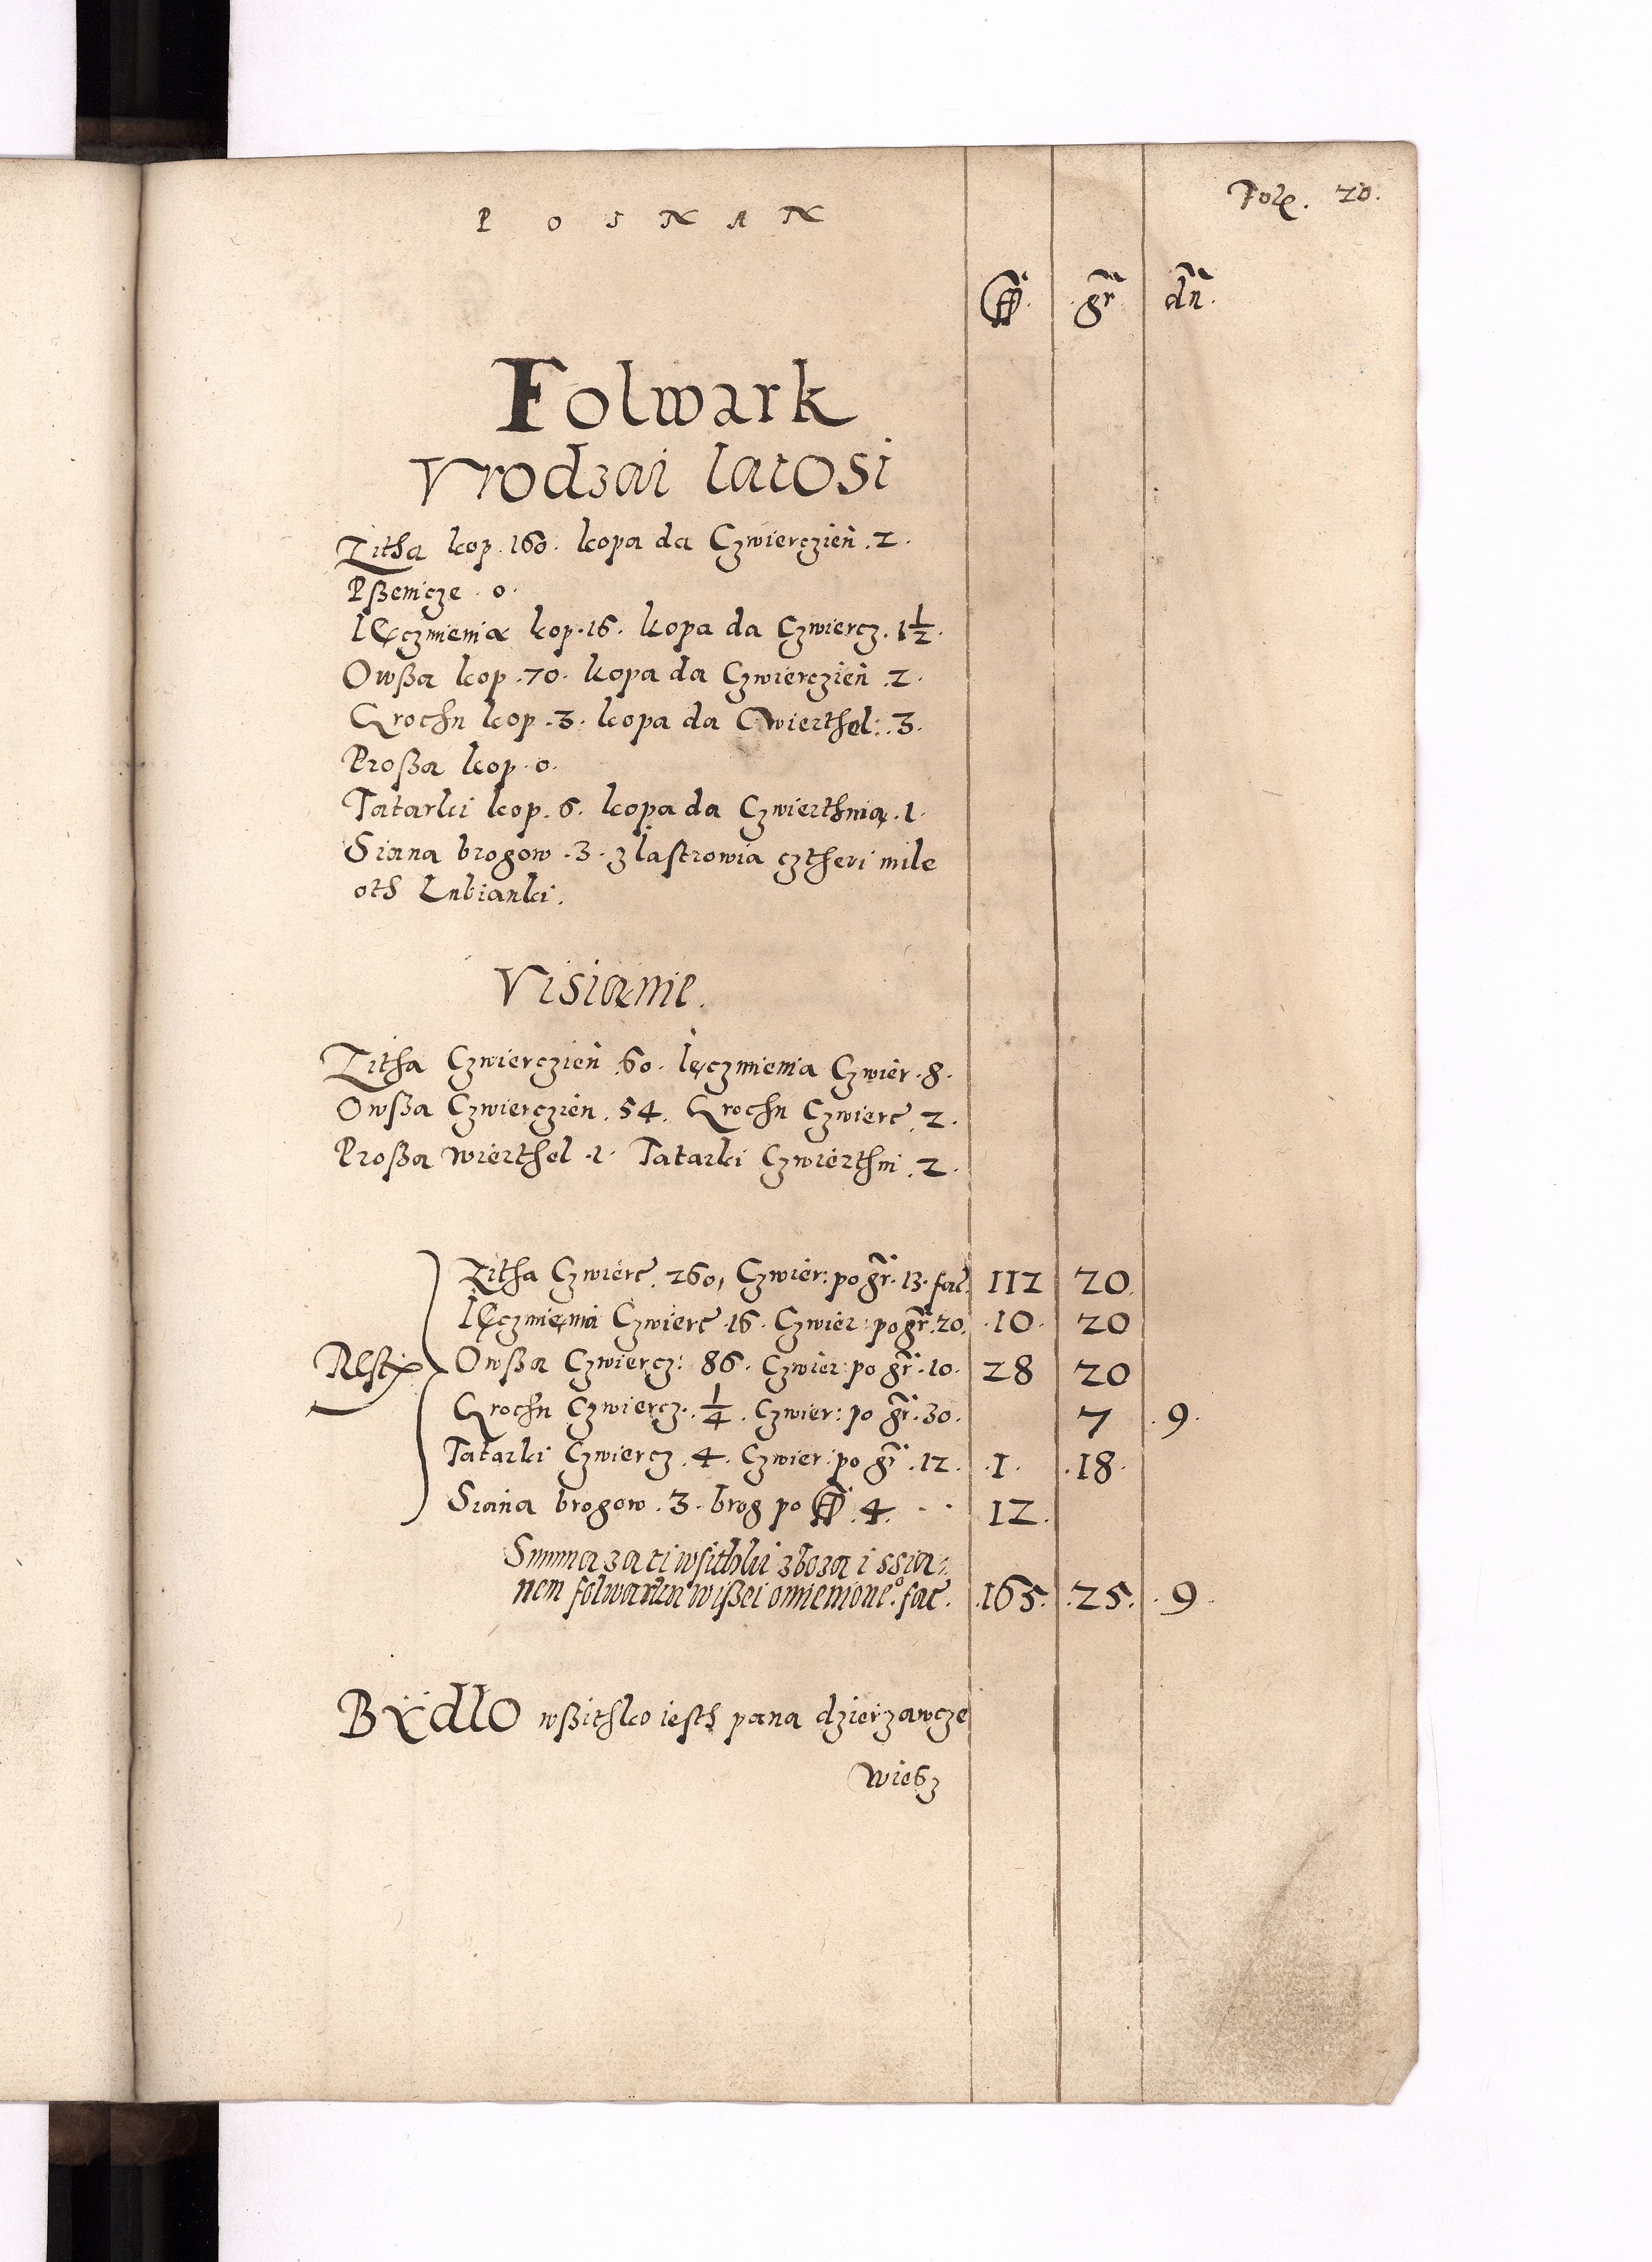 P O S N A N
Fole. 20.
ff. gr dn.
Folwark
Vrodzai latosi
Zitha kop. 160. kopa da Czwierczien .2.
Pßenicze .0.
Ięczmienia kop. 16. kopa da Czwiercz. 1½.
Owßa kop .70. kopa da Czwierczien .2.
Grochu kop .3. kopa da Cwierthel: .3.
Proßa kop .0.
Tatarki kop. 6. kopa da Czwierthnią .1.
Siana brogow .3. z lastrowia cztheri mile
oth Lubianki.
Visianie.
Zitha Czwierczien 60. Ięczmienia Czwier .8.
Owßa Czwierczien .54. Grochu Czwierc .2.
Proßa wierthel .1. Tatarki Czwierthni .2.
Zitha Czwierc .260, Czwier: po gr. 13. fac. 112 20.
Ięczmienia Czwierc .16. Czwier: po gr. 20. .10. 20
Rest Owßa Czwiercz: 86. Czwier: po gr. 10. 28 20
Grochu Czwiercz. ¼. Czwier: po gr. 30. 7 .9.
Tatarki Czwiercz .4. Czwier: po gr .12. .1. .18.
Siana brogow .3. brog po ff. 4. 12.
Summa za ti wsithki zboza i ssia-
nem folwarka wißei omienione°. fac. .165. .25. .9.
Bydło wßithko iesth pana dzierzawcze
wiesz